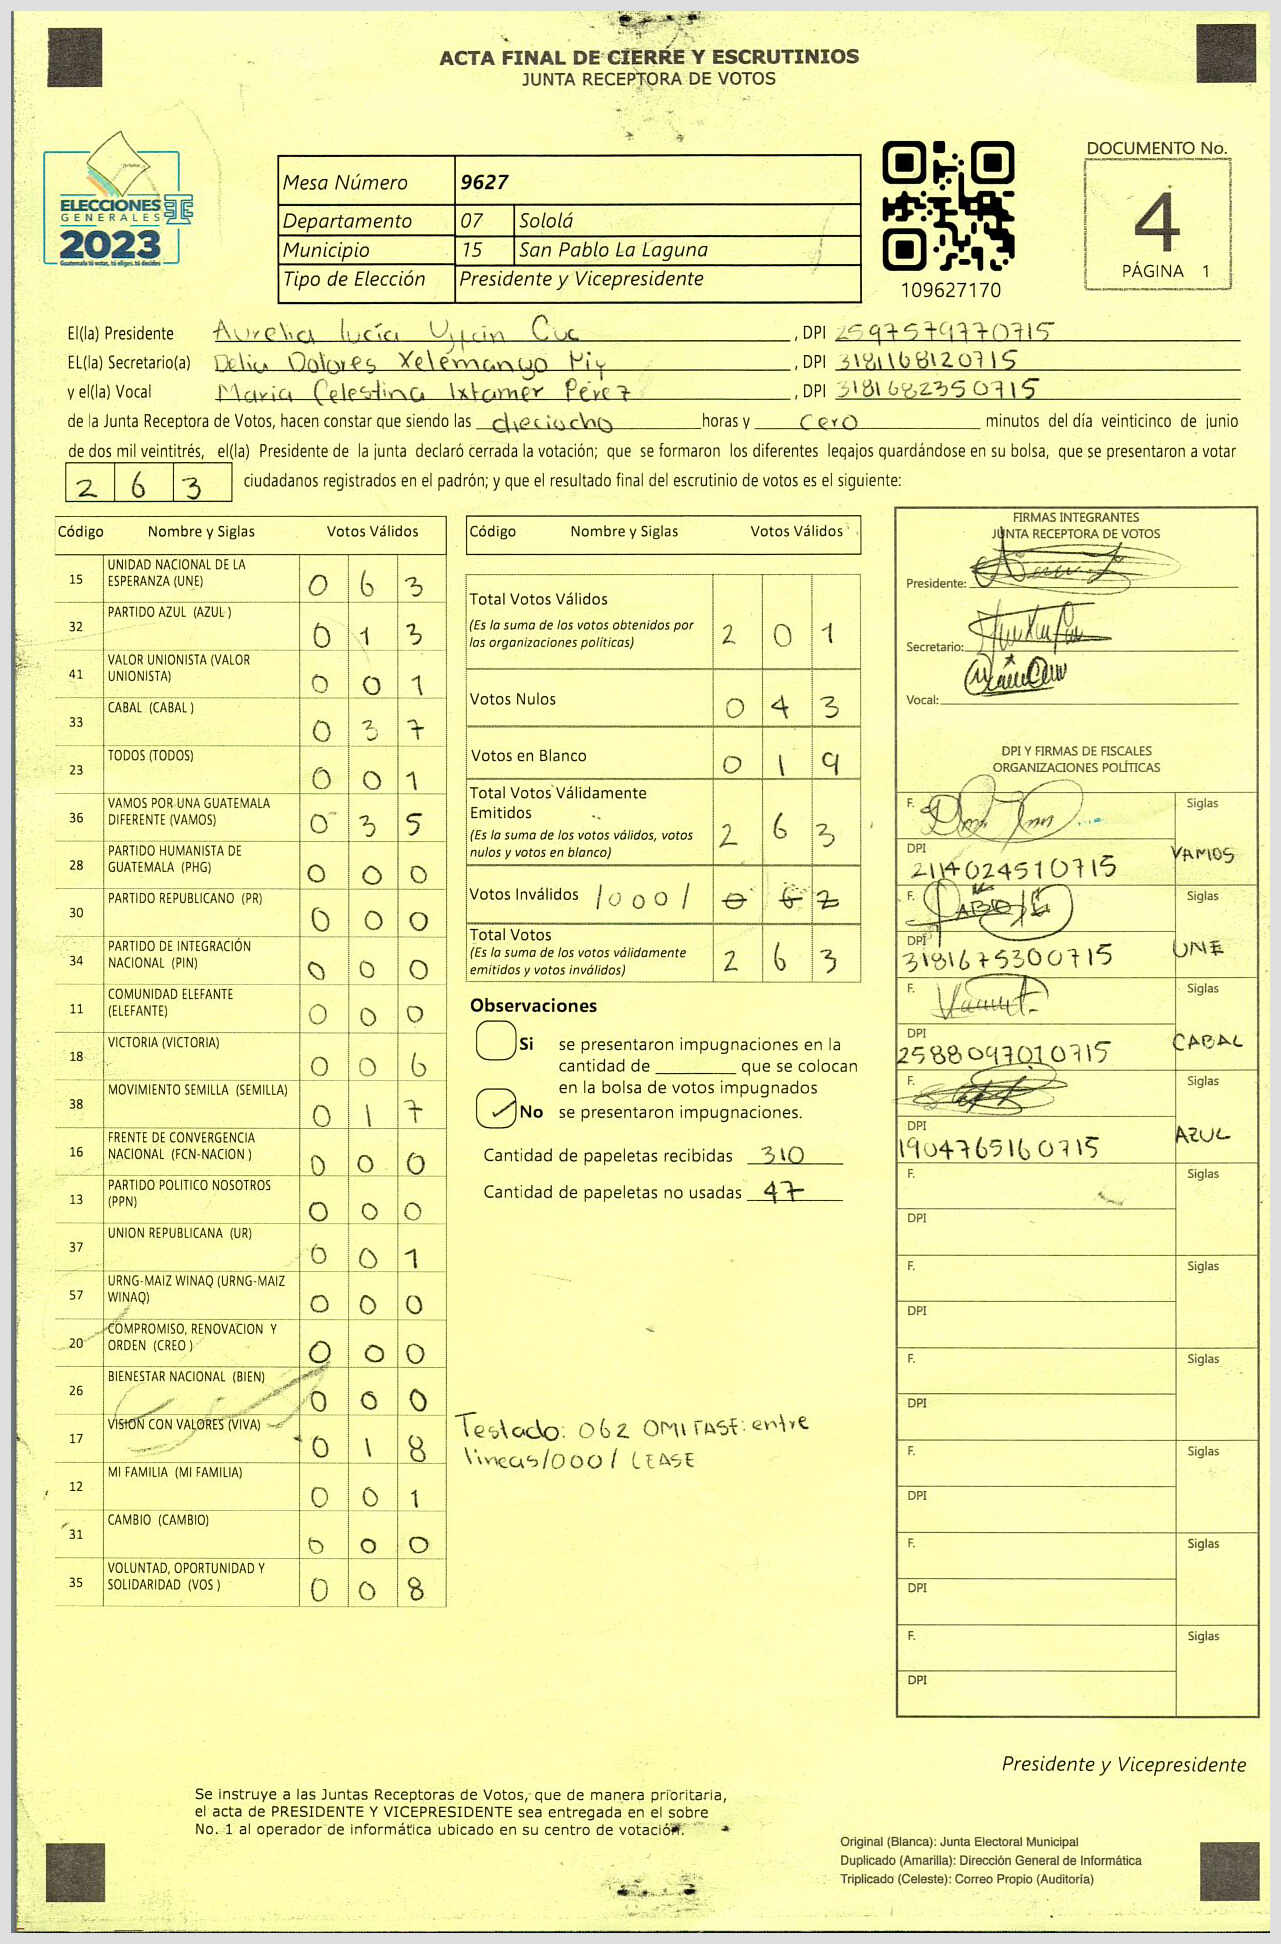 ACTA FINAL DE CIERRE Y ESCRUTINIOS
JUNTA RECEPTORA DE VOTOS
ELECCIONES
GENERALES
2023
Guatemala tú votas, tú eliges, tú decides
Mesa Número 9627
Departamento 07 Sololá
Municipio 15 San Pablo La Laguna
Tipo de Elección Presidente y Vicepresidente
109627170
DOCUMENTO No.
4
PÁGINA 1
El(la) Presidente Aurelia Lucía Cuc, DPI 2597579770715
EL(la) Secretario(a) Delia Dolores Xelemango, DPI 3181168120715
y el(la) Vocal Maria Celestina Ixtamer Pérez, DPI 3181682350715
de la Junta Receptora de Votos, hacen constar que siendo las dieciocho horas y cero minutos del día veinticinco de junio
de dos mil veintitrés, el(la) Presidente de la junta declaró cerrada la votación; que se formaron los diferentes legajos guardándose en su bolsa, que se presentaron a votar
263 ciudadanos registrados en el padrón; y que el resultado final del escrutinio de votos es el siguiente:
Código Nombre y Siglas Votos Válidos
15 UNIDAD NACIONAL DE LA ESPERANZA (UNE) 0 6 3
32 PARTIDO AZUL (AZUL ) 0 1 3
41 VALOR UNIONISTA (VALOR UNIONISTA) 0 0 1
33 CABAL (CABAL ) 0 3 7
23 TODOS (TODOS) 0 0 1
36 VAMOS POR UNA GUATEMALA DIFERENTE (VAMOS) 0 3 5
28 PARTIDO HUMANISTA DE GUATEMALA (PHG) 0 0 0
30 PARTIDO REPUBLICANO (PR) 0 0 0
34 PARTIDO DE INTEGRACIÓN NACIONAL (PIN) 0 0 0
11 COMUNIDAD ELEFANTE (ELEFANTE) 0 0 0
18 VICTORIA (VICTORIA) 0 0 6
38 MOVIMIENTO SEMILLA (SEMILLA) 0 1 7
16 FRENTE DE CONVERGENCIA NACIONAL (FCN-NACION ) 0 0 0
13 PARTIDO POLITICO NOSOTROS (PPN) 0 0 0
37 UNION REPUBLICANA (UR) 0 0 1
57 URNG-MAIZ WINAQ (URNG-MAIZ WINAQ) 0 0 0
20 COMPROMISO, RENOVACION Y ORDEN (CREO ) 0 0 0
26 BIENESTAR NACIONAL (BIEN) 0 0 0
17 VISION CON VALORES (VIVA) 0 1 8
12 MI FAMILIA (MI FAMILIA) 0 0 1
31 CAMBIO (CAMBIO) 0 0 0
35 VOLUNTAD, OPORTUNIDAD Y SOLIDARIDAD (VOS ) 0 0 8
Código Nombre y Siglas Votos Válidos
Total Votos Válidos 2 0 1
(Es la suma de los votos obtenidos por
las organizaciones políticas)
Votos Nulos 0 4 3
Votos en Blanco 0 1 9
Total Votos Válidamente
Emitidos 2 6 3
(Es la suma de los votos válidos, votos
nulos y votos en blanco)
Votos Inválidos /000/ 0 6 2
Total Votos 2 6 3
(Es la suma de los votos válidamente
emitidos y votos inválidos)
Observaciones
Si se presentaron impugnaciones en la
cantidad de ________ que se colocan
en la bolsa de votos impugnados
No se presentaron impugnaciones.
Cantidad de papeletas recibidas 310
Cantidad de papeletas no usadas 47
Testado: 062 OMITASE: entre
lineas/000/ LEASE
FIRMAS INTEGRANTES
JUNTA RECEPTORA DE VOTOS
Presidente:
Secretario:
Vocal:
DPI Y FIRMAS DE FISCALES
ORGANIZACIONES POLÍTICAS
F. Siglas
DPI 2114024510715 VAMOS
F. Siglas
DPI 3181675300715 UNE
F. Siglas
DPI 2588097010715 CABAL
F. Siglas
DPI 1904765160715 AZUL
F. Siglas
DPI
F. Siglas
DPI
F. Siglas
DPI
F. Siglas
DPI
F. Siglas
DPI
F. Siglas
DPI
Presidente y Vicepresidente
Se instruye a las Juntas Receptoras de Votos, que de manera prioritaria,
el acta de PRESIDENTE Y VICEPRESIDENTE sea entregada en el sobre
No. 1 al operador de informática ubicado en su centro de votación.
Original (Blanca): Junta Electoral Municipal
Duplicado (Amarilla): Dirección General de Informática
Triplicado (Celeste): Correo Propio (Auditoría)